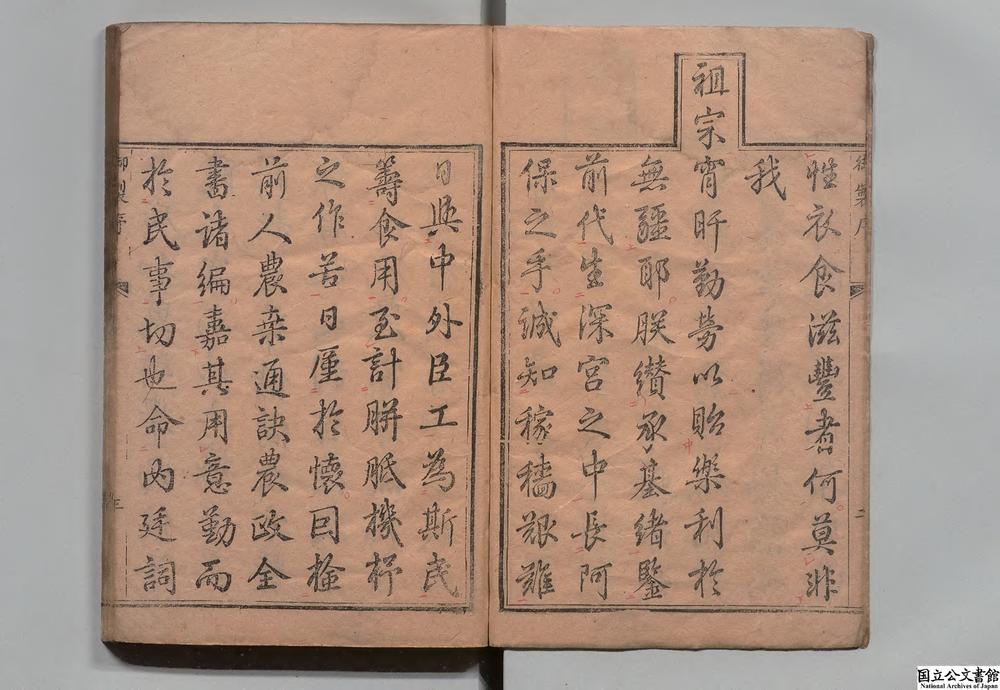 御製序
二
性衣食滋豐者何莫非
我
祖宗宵旰勤勞以貽樂利於
無疆耶朕纘承基緒鑒
前代生深宮之中長阿
保之手誠知稼穡艱難
日與中外臣工為斯民
籌食用至計胼胝機杼
之作苦日厪於懷因檢
前人農桒通訣農政全
書諸編嘉其用意勤而
於民事切也命內廷詞
御製序
三
国立公文書館
National Archives of Japan